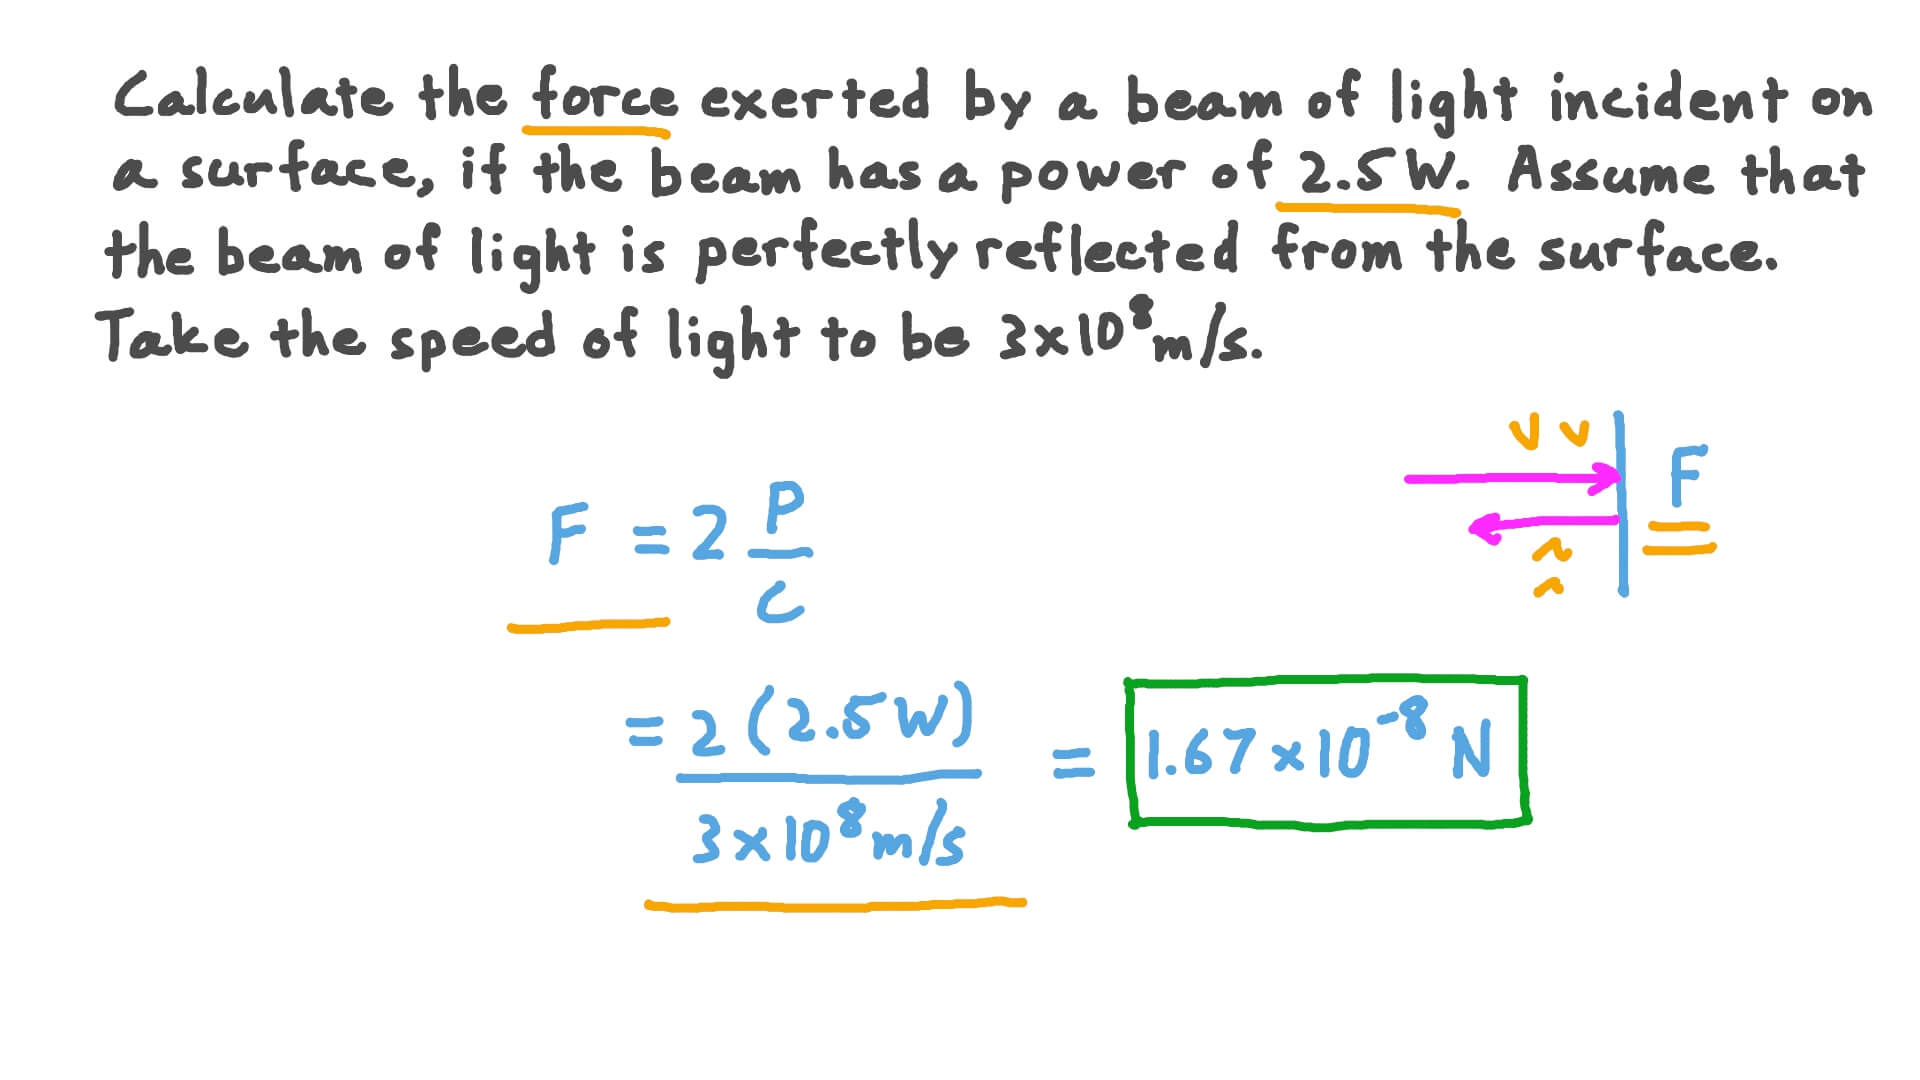 Calculate the force exerted by a beam of light incident on
a surface, if the beam has a power of 2.5 W. Assume that
the beam of light is perfectly reflected from the surface.
Take the speed of light to be 3x10⁸m/s.
F
F = 2 P/c
= 2 (2.5 W) / 3x10⁸m/s = 1.67 x10⁻⁸ N